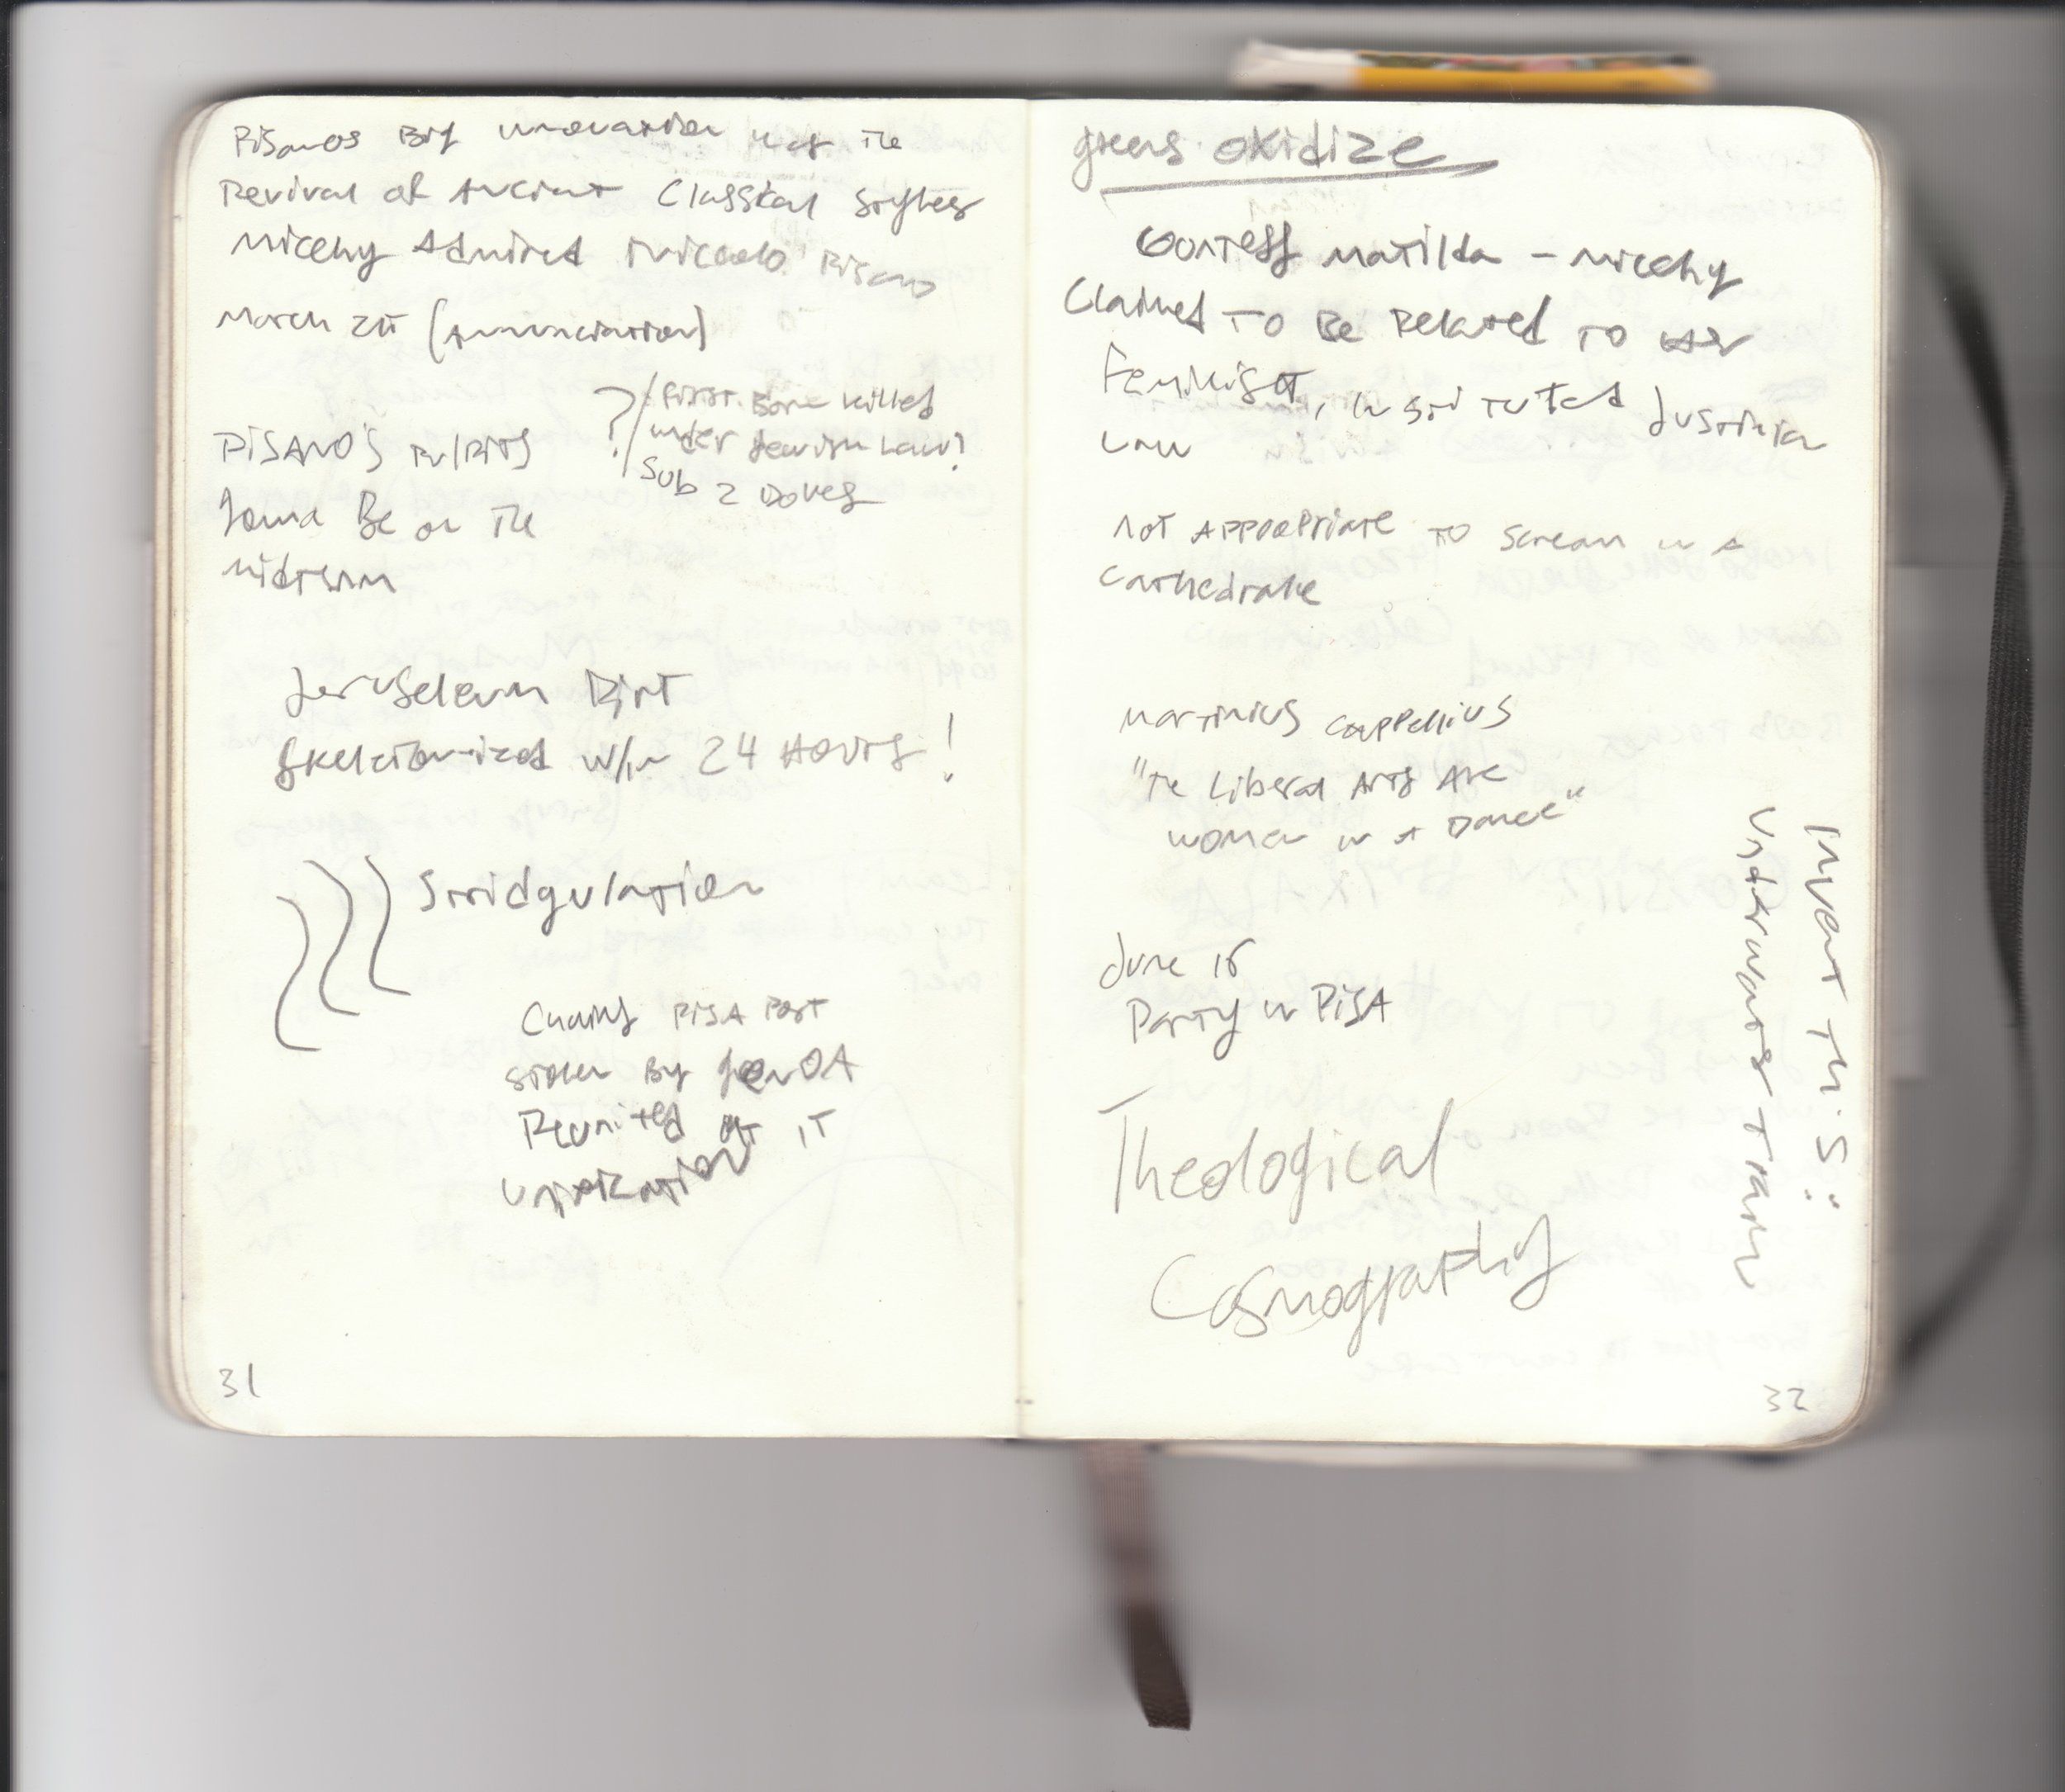 Pisanos Big innovation was the
Revival of Ancient Classical Sytles
Micelhy Admired Niccolo Pisano
March 25 (Annunciation)
? / First Born killed
under Jewish Law?
Sub 2 Doves
PISANO'S PulPITS
Be on the
midterm
Jeruselem Dirt
Skeletonized w/in 24 Hours!
Stridgulation
Chains PISA Port
stolen By GenOA
Reunited at IT
unification
31
greens oxidize
Contess Matilda -
Claimed To Be Related To
Feminist, instituted Justinian
Law
Not Appropriate To Scream in A
Cathedrale
Martinius Cappellius
"The Liberal Arts Are
women in A Dance"
June 16
Party in PISA
Theological
Cosmography
Invent This:
Underwater Train
32